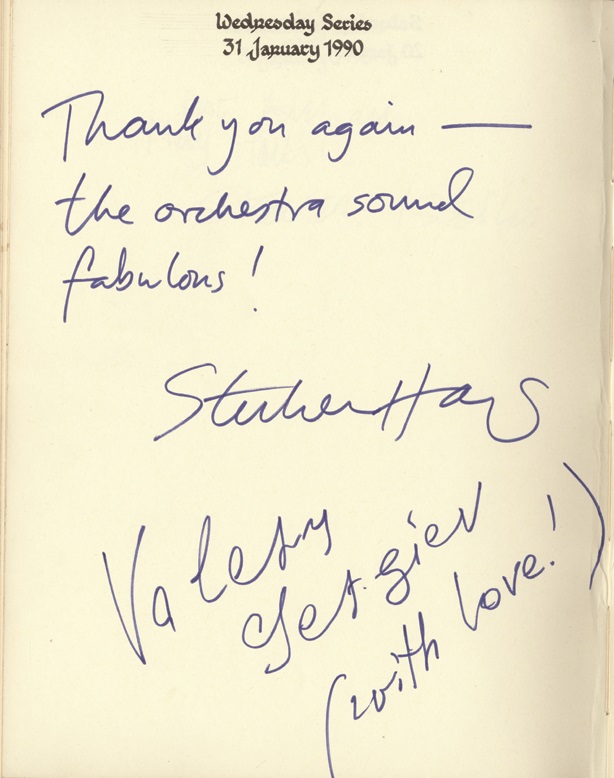 Wednesday Series
31 January 1990
Thank you again —
the orchestra sound
fabulous!
Stephen Hough
Valery
Gergiev
(with love!)